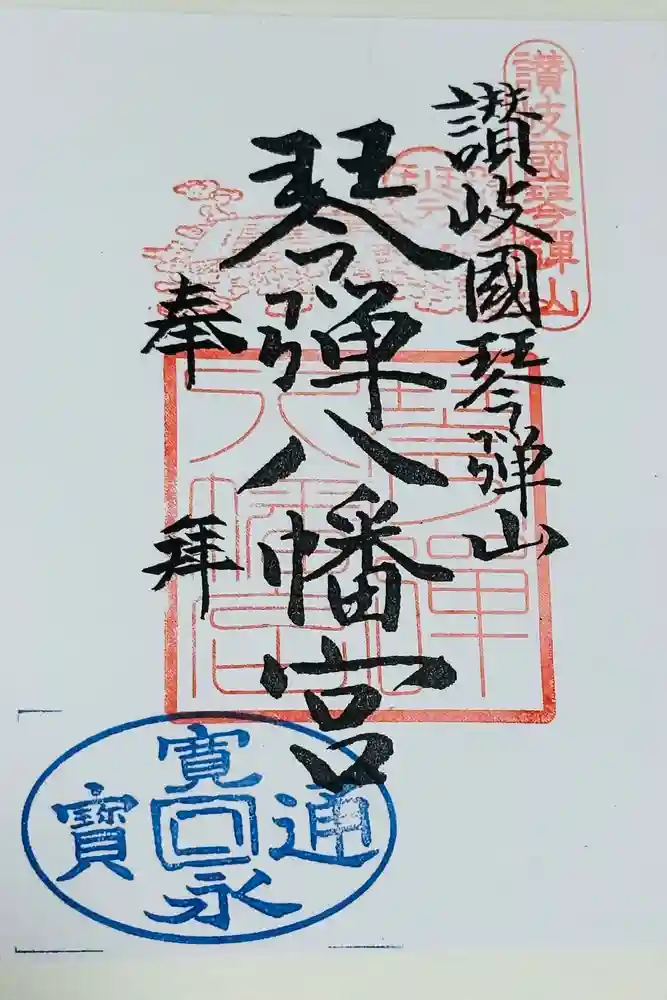 讃岐國琴弾山
讃岐國琴弾山
琴弾八幡宮
奉拝
琴弾
八幡宮
寛永通寳